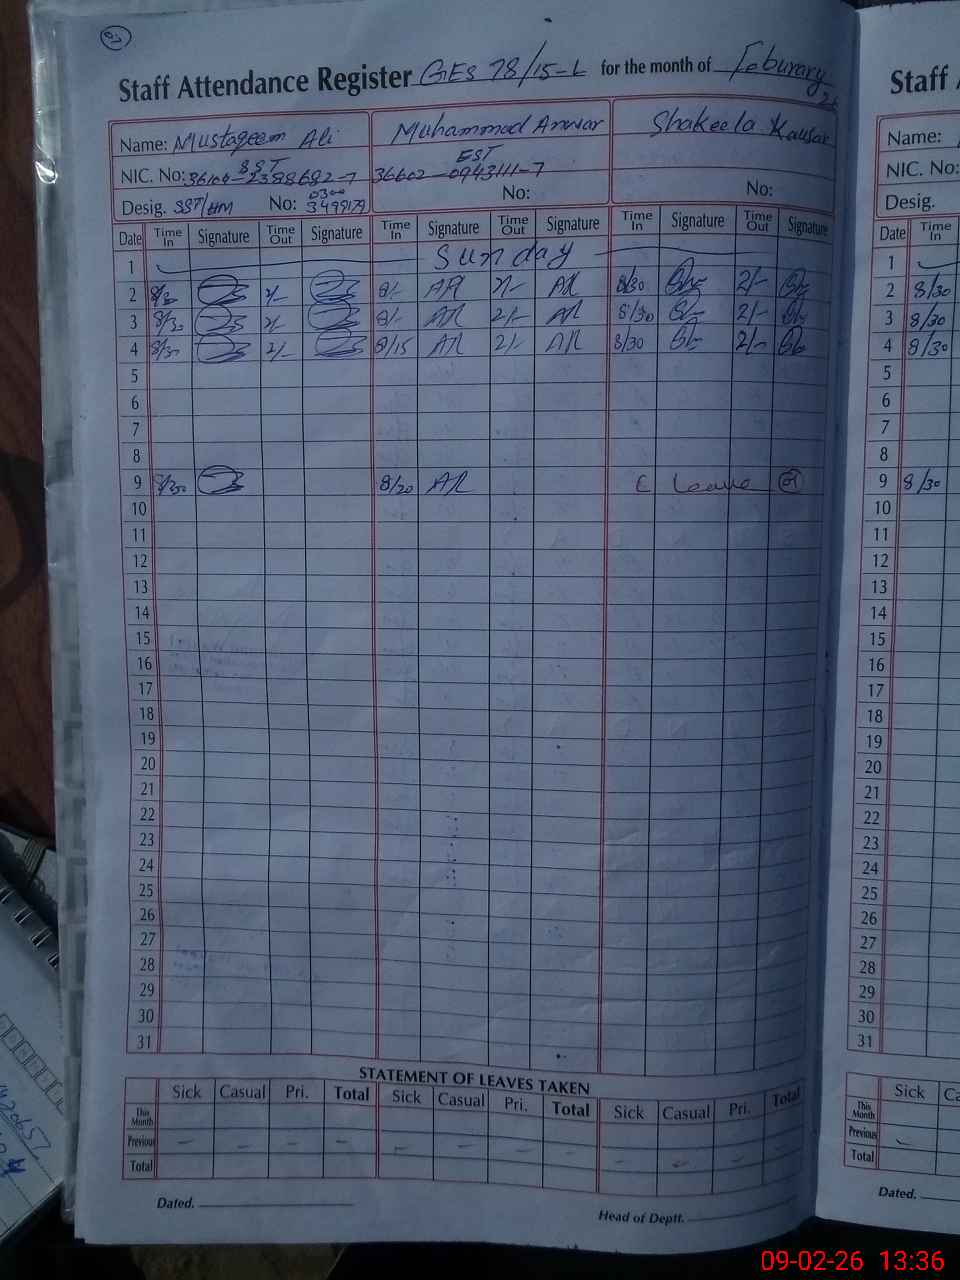 Staff Attendance Register GES 78/15-L for the month of Feburary 26
Name: Mustaqeem Ali Muhammad Anwar Shakeela Kausar
SST EST
NIC. No: 36104-2388682-7 36602-0943111-7
0300
Desig. SST/HM No: 3499179 No: No:
Date Time In Signature Time Out Signature Time In Signature Time Out Signature Time In Signature Time Out Signature
1 Sunday
2 8/30 2/- 8/- AR 2/- AR 8/30 2/-
3 8/30 2/- 8/- AR 2/- AR 8/30 2/-
4 8/30 2/- 8/15 AR 2/- AR 8/30 2/-
5
6
7
8
9 8/30 8/20 AR C Leave 01
10
11
12
13
14
15
16
17
18
19
20
21
22
23
24
25
26
27
28
29
30
31
STATEMENT OF LEAVES TAKEN
Sick Casual Pri. Total Sick Casual Pri. Total Sick Casual Pri. Total
This Month
Previous - - - - - - - - - - -
Total
Dated. Head of Deptt.
Staff
Name:
NIC. No:
Desig.
Date Time In
1
2 8/30
3 8/30
4 8/30
5
6
7
8
9 8/30
10
11
12
13
14
15
16
17
18
19
20
21
22
23
24
25
26
27
28
29
30
31
Sick Ca
This Month
Previous -
Total
Dated.
09-02-26 13:36